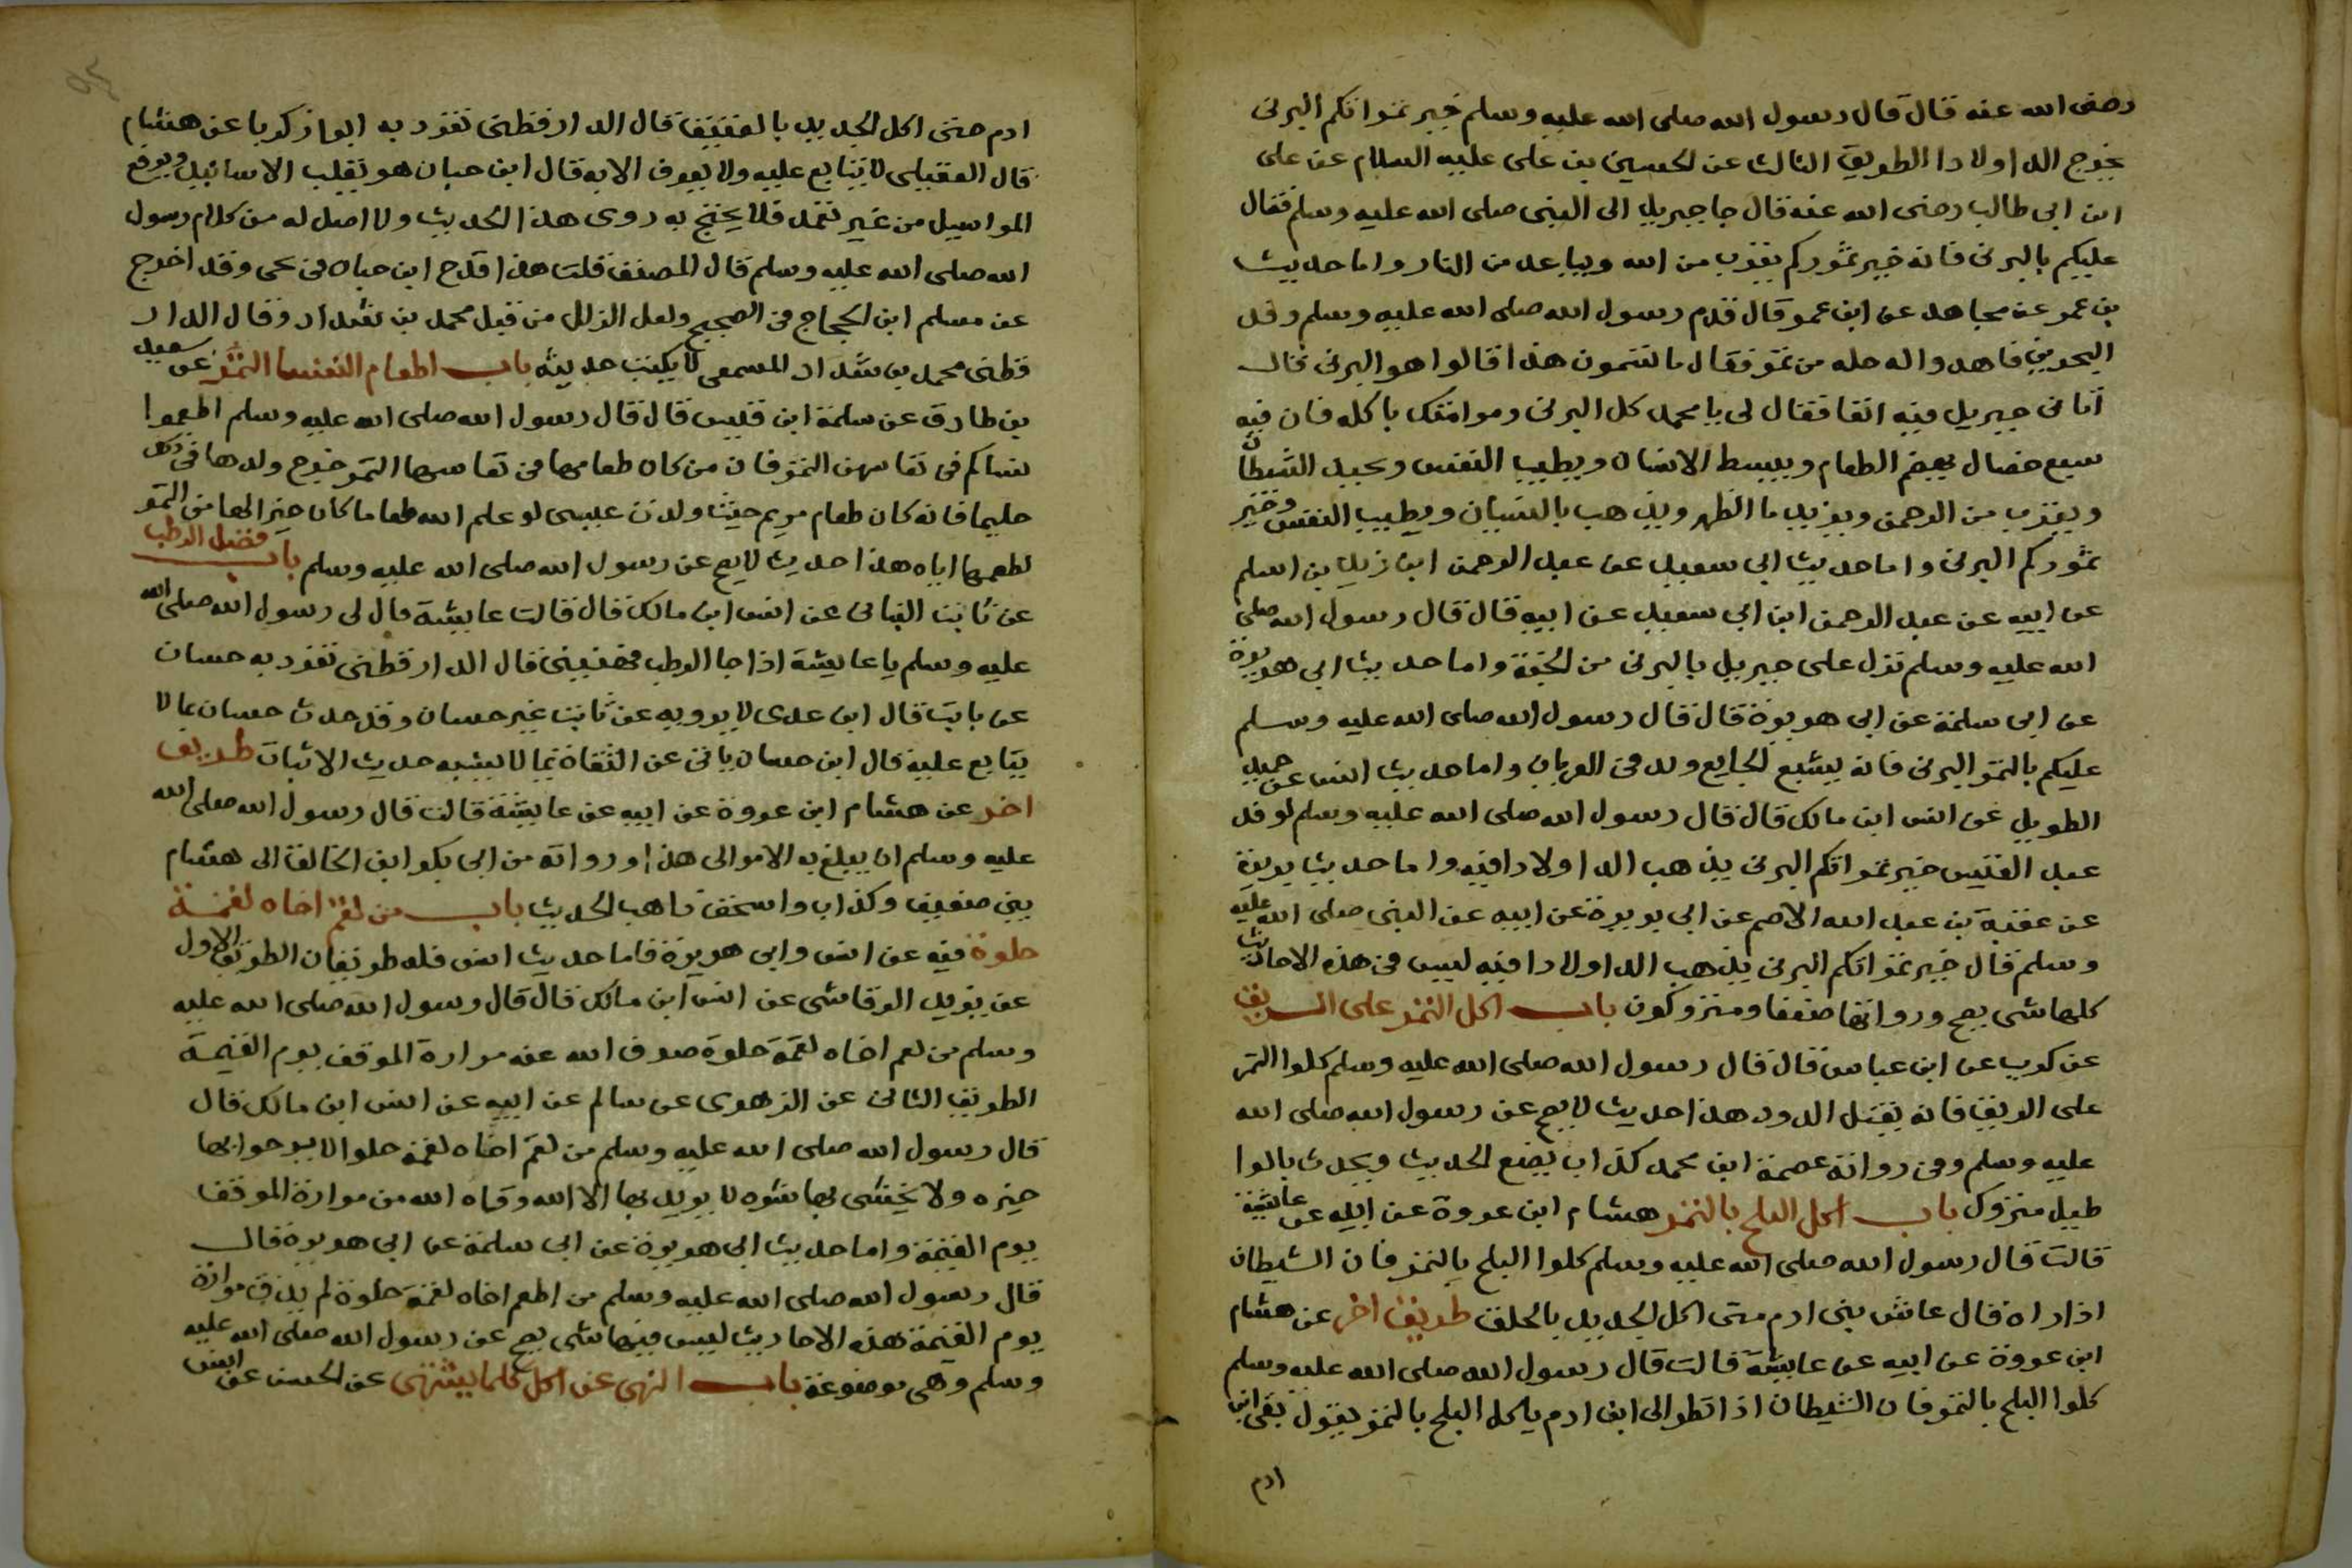 رضى الله عنه قال قال رسول الله صلى الله عليه وسلم خير تمراتكم البرنى
يخرج الدا ولا دا الطريق الثالث عن الحسين بن على عليه السلام عن على
ابن ابى طالب رضى الله عنه قال جا جبريل الى النبى صلى الله عليه وسلم فقال
عليكم بالبرنى فانه خير تموركم يقرب من الله ويباعد من النار واما حديث
بن عمر عن مجاهد عن ابن عمر قال قدم رسول الله صلى الله عليه وسلم وفد
البحرين فاهدوا له حله من تمر فقال ما تسمون هذا قالوا هو البرنى قال
اتانى جبريل فيه انفا فقال لى يا محمد كل البرنى ومر امتك باكله فان فيه
سبع خصال يهضم الطعام ويبسط الانسان ويطيب النفس ويخبل الشيطان
ويقرب من الرحمن ويزيد ما الظهر ويذهب بالنسيان ويطيب النفس وخير
تموركم البرنى واما حديث ابى سعيد عن عبد الرحمن ابن زيد بن اسلم
عن ابيه عن عبد الرحمن ابن ابى سعيد عن ابيه قال قال رسول الله صلى
الله عليه وسلم نزل على جبريل بالبرنى من الجنة واما حديث ابى هريرة
عن ابى سلمة عن ابى هريرة قال قال رسول الله صلى الله عليه وسلم
عليكم بالتمر البرنى فانه يشبع الجايع ويدفى العريان واما حديث انس عن حميد
الطويل عن انس ابن مالك قال قال رسول الله صلى الله عليه وسلم لوفد
عبد القيس خير تمراتكم البرنى يذهب الدا ولا دا فيه واما حديث بريدة
عن عقبة بن عبد الله الاصم عن ابى بريرة عن ابيه عن النبى صلى الله عليه
وسلم قال خير تمراتكم البرنى يذهب الدا ولا دا فيه ليس فى هذه الاحاديث
كلها شى يصح ورواتها ضعفا ومتروكون باب اكل التمر على الريق
عن كريب عن ابن عباس قال قال رسول الله صلى الله عليه وسلم كلوا التمر
على الريق فانه يقتل الدود هذا حديث لا يصح عن رسول الله صلى الله
عليه وسلم وفى رواته عصمة ابن محمد كذاب يضع الحديث ويحدث بالبوا
طيل متروك باب اكل البلح بالتمر هشام ابن عروة عن ابيه عن عائشة
قالت قال رسول الله صلى الله عليه وسلم كلوا البلح بالتمر فان الشيطان
اذا راه قال عاش بنى ادم حتى اكل الجديد بالخلق طريق اخر عن هشام
ابن عروة عن ابيه عن عايشة قالت قال رسول الله صلى الله عليه وسلم
كلوا البلح بالتمر فان الشيطان اذا نظر الى ابن ادم ياكل البلح بالتمر يقول بقى ابن
ادم
ادم حتى اكل الجديد بالعتيق قال الدارقطنى تفرد به ابوا زكريا عن هشام
قال العقيلى لا يتابع عليه ولا يعرف الا به قال ابن حبان هو يقلب الاسانيد ويرفع
المراسيل من غير تعمد فلا يحتج به روى هذا الحديث ولا اصل له من كلام رسول
الله صلى الله عليه وسلم قال المصنف قلت هذا قدح ابن حبان فى يحى وقد اخرج
عن مسلم ابن الحجاج فى الصحيح ولعل الزلل من قبل محمد بن شداد وقال الدار
قطنى محمد بن شداد المسمعى لا يكتب حديثه باب اطعام النفسا التمر عن سعيد
بن طارق عن سلمة ابن قيس قال قال رسول الله صلى الله عليه وسلم اطعموا
نساكم فى نفاسهن التمر فان من كان طعامها فى نفاسها التمر خرج ولدها ذلك
حليما فانه كان طعام مريم حيث ولدت عيسى لو علم الله طعاما كان خيرا لها من التمر
لطعمها اياه هذا حديث لا يصح عن رسول الله صلى الله عليه وسلم باب فضل الرطب
عن ثابت البنانى عن انس ابن مالك قال قالت عايشة قال لى رسول الله صلى الله
عليه وسلم يا عايشة اذا جا الرطب فهنينى قال الدارقطنى تفرد به حسان
عن ثابت قال ابن عدى لا يرويه عن ثابت غير حسان وقد حدث حسان بما لا
يتابع عليه قال ابن حسان ياتى عن الثقاة بما لا يشبه حديث الاثبات طريق
اخر عن هشام ابن عروة عن ابيه عن عايشة قالت قال رسول الله صلى الله
عليه وسلم ان يبلغ به الامر الى هذا ورواته من ابى بكر ابن الخالف الى هشام
بين ضعيف وكذاب واسخف ذاهب الحديث باب من لقم اخاه لقمة
حلوة فيه عن انس وابى هريرة فاما حديث انس فله طريقان الطريق الاول
عن يزيد الرقاشى عن انس ابن مالك قال قال رسول الله صلى الله عليه
وسلم من لقم اخاه لقمة حلوة صرف الله عنه مرارة الموقف يوم القيمة
الطريق الثانى عن الزهرى عن سالم عن ابيه عن انس ابن مالك قال
قال رسول الله صلى الله عليه وسلم من لقم اخاه لقمة حلوا لا يرجوا بها
خيره ولا يخشى بها شره لا يريد بها الا الله وقاه الله من مرارة الموقف
يوم القيمة واما حديث ابى هريرة عن ابى سلمة عن ابى هريرة قال
قال رسول الله صلى الله عليه وسلم من اطعم اخاه لقمة حلوة لم يذق مرارة
يوم القيمة هذه الاحاديث ليس فيها شى يصح عن رسول الله صلى الله عليه
وسلم وهى موضوعة باب النهى عن اكل كلما يشتهى عن الحسن عن انس